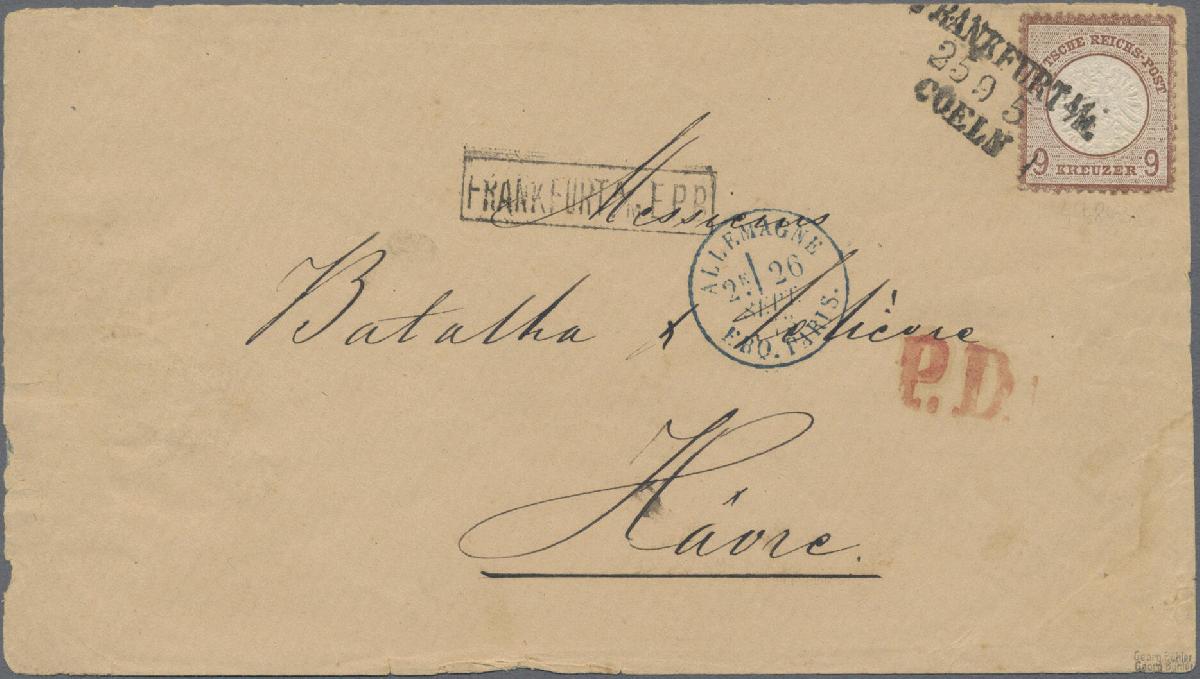 FRANKFURT A/M.
25 9 5
COELN
TSCHE REICHS-POST
9 KREUZER 9
FRANKFURT A/M E.P.R.
Messieurs
ALLEMAGNE
2E 26
SEPT.
ERQ. PARIS.
Batalha &
P.D.
Hâvre.
Georg Bühler
Georg Bühler